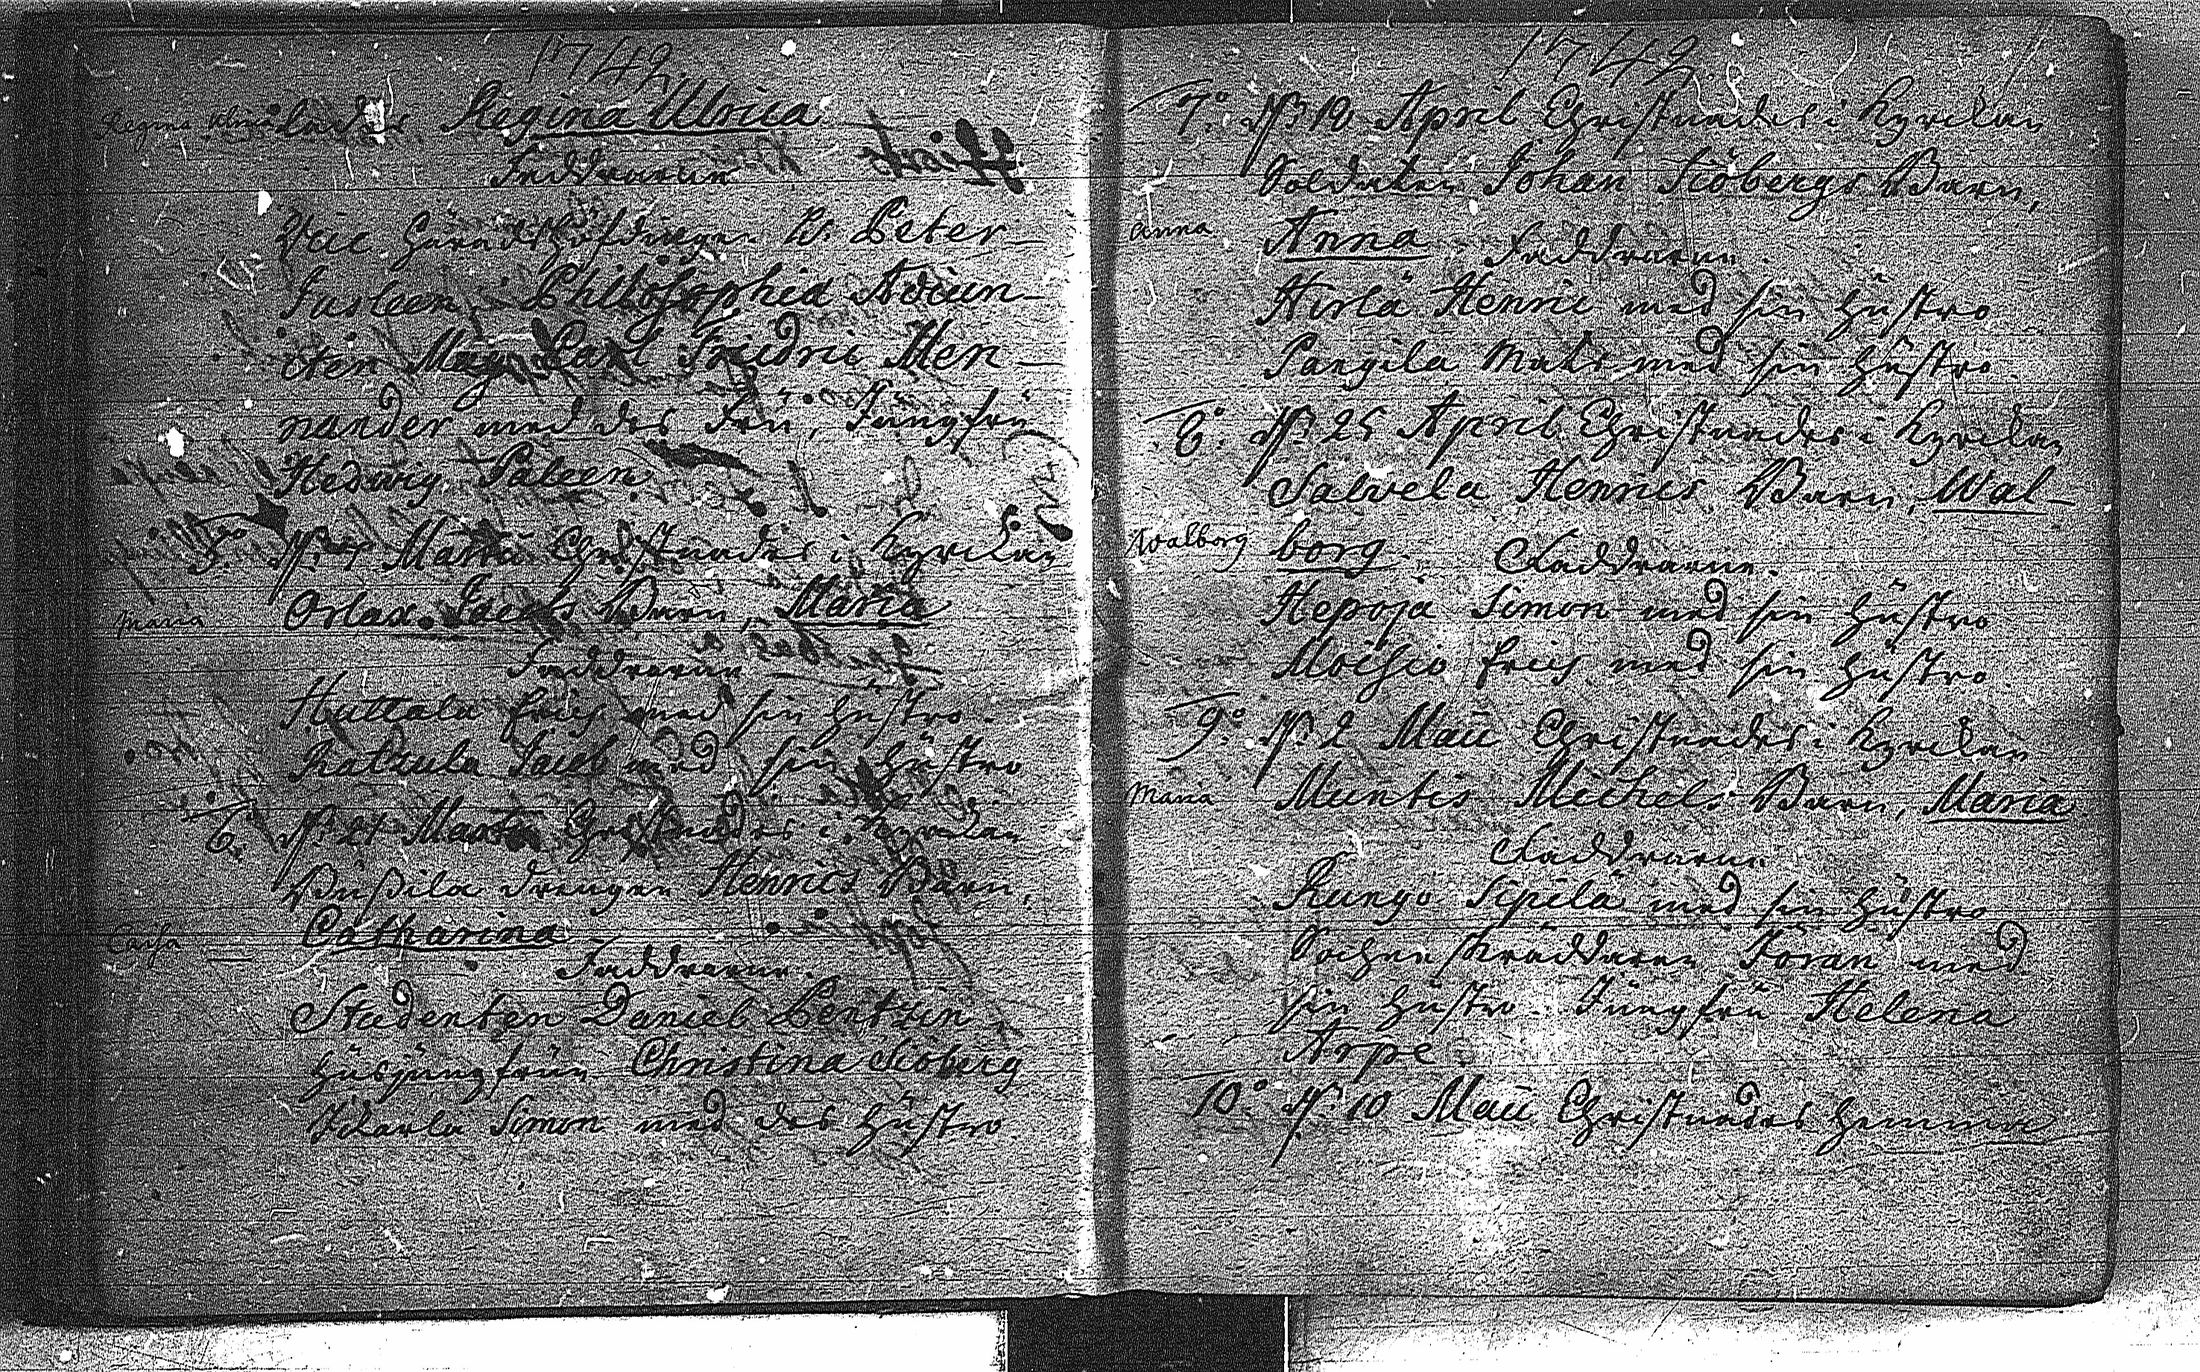 1742
Regina Ulrica
Faddrarne
Vice Häradshöfdingen H. Peter
Jusleen, Philosophiæ Adiun-
cten Mag. Carl Fridric Men-
nander med des Fru, Jungfru
Hedwig Paleen.
5:o Martii Christnades i Kyrckan
Maria
Jacobs Barn, Maria
Faddrarne
Huttala Erics med sin Hustro.
Jacob med sin Hustro
6. D. 21 Martii Christnades i Kyrckan
drengen Henrics Barn,
Catharina
Caisa
Faddrarne.
Studenten Daniel Bentzin,
Husjungfrun Christina Siöberg
Simon med des Hustro.
1742.
7:o D. 18 April Christnades i Kyrckan
Soldaten Johan Siöbergs Barn,
Anna
Anna Faddrarne.
Hirlä Henric med sin Hustro
Pangila Mats med sin Hustro.
8:o D. 25 April Christnades i Kyrckan
Salvela Henrics Barn, Wal-
Walborg
borg. Faddrarne.
Hepoja Simon med sin Hustro
Moisio Erics med sin Hustro.
9:o D. 2 Maii Christnades i Kyrckan
Maria
Muntis Michels Barn, Maria.
Faddrarne
Kungo Sipilä med sin Hustro
Sochneskräddaren Jöran med
sin Hustro. Jungfru Helena
Arpe.
10:o D. 10 Maii Christnades hemma